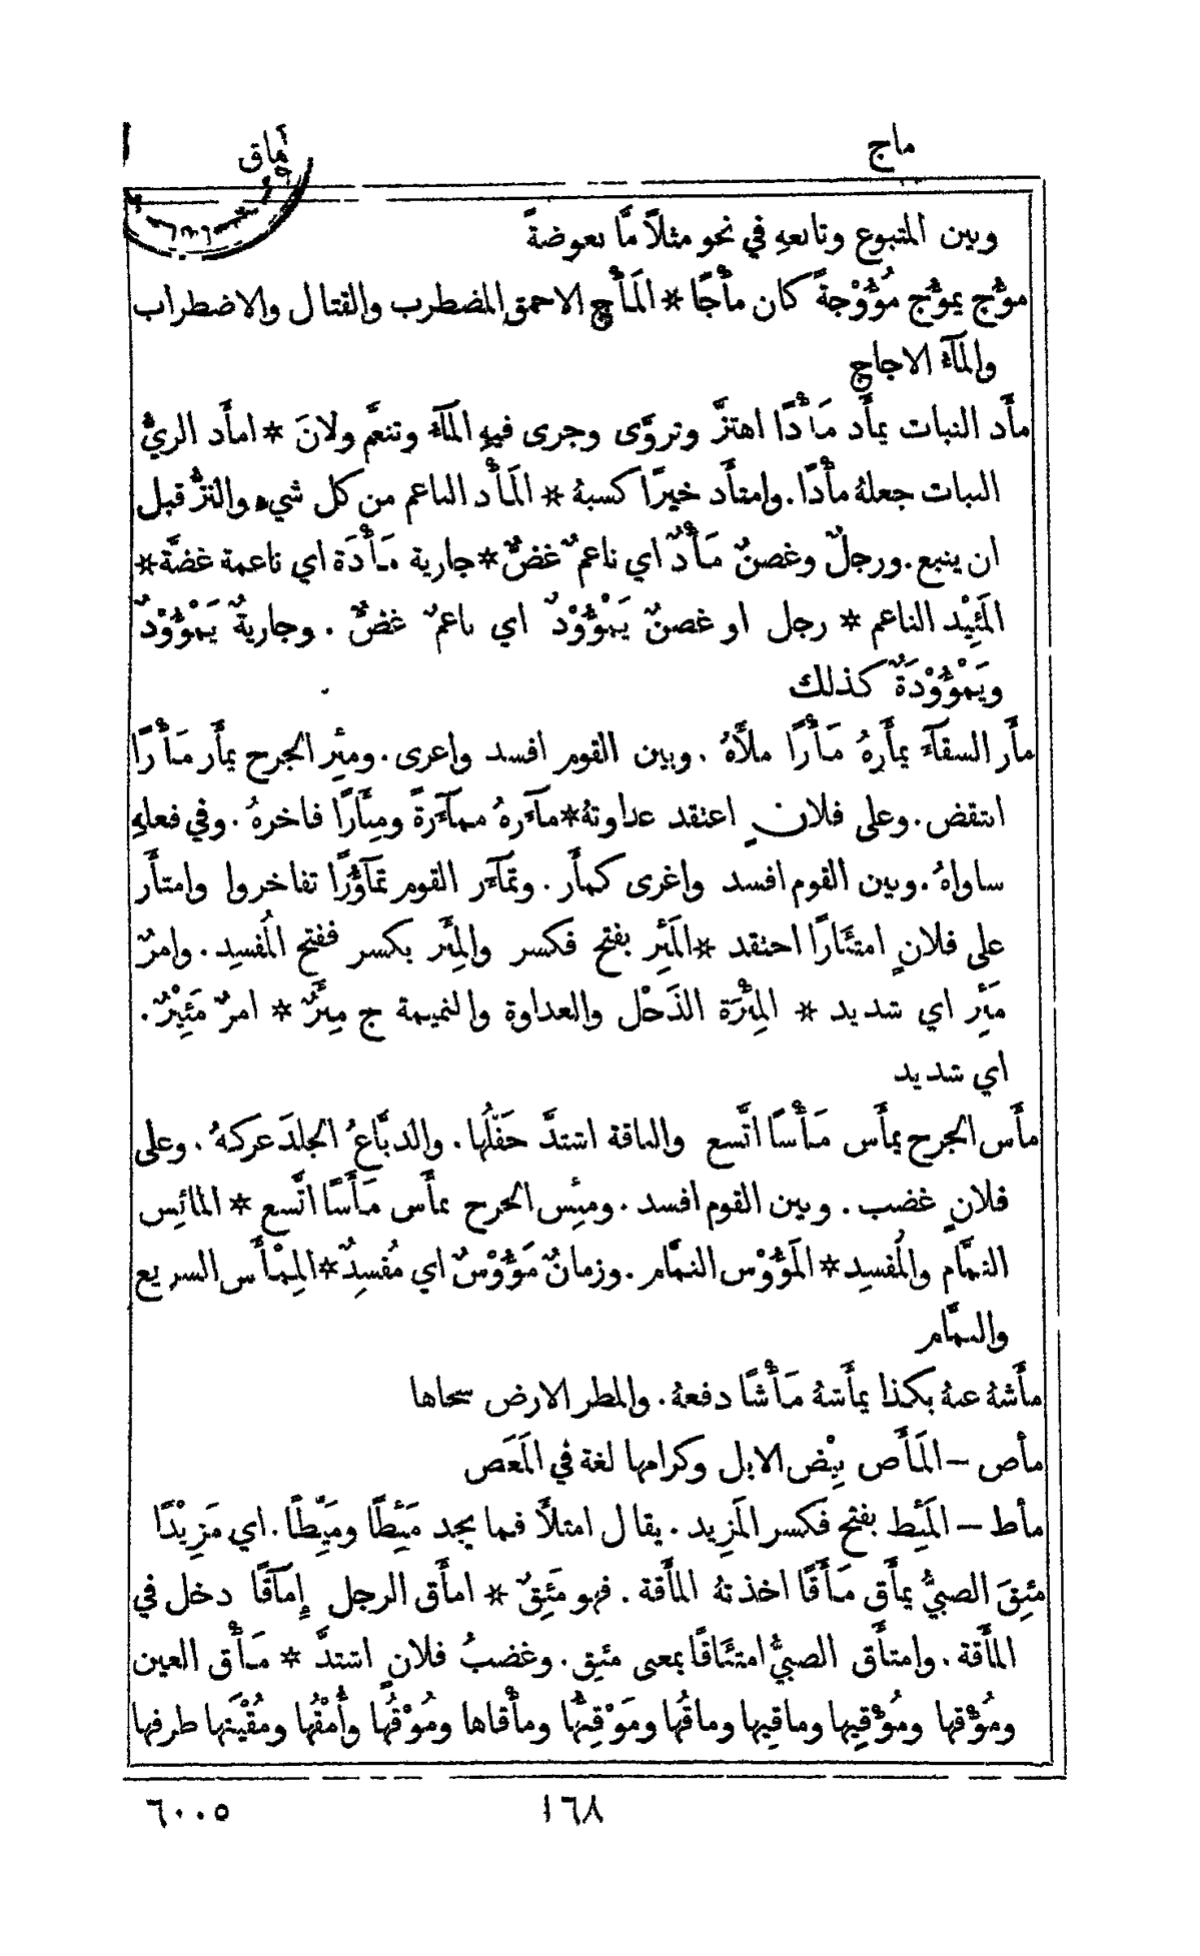 ماج
مأق
وبين المتبوع وتابعهِ في نحو مثلاً مَّا بعوضةً
مؤُج يمؤُج مُؤُوْجةً كان مأْجًا * المَأْج الاحمق المضطرب والقتال والاضطراب
والمآء الاجاج
مأَد النبات يمأَد مَأْدًا اهتزَّ وتروَّى وجرى فيهِ المآء وتنعَّم ولانَ * امأَد الريُّ
النبات جعلهُ مأْدًا. وامتأَد خيرًا كسبهُ * المَأْد الناعم من كل شيء والنزُّ قبل
ان ينبع. ورجلٌ وغصنٌ مَأْدٌ اي ناعمٌ غضٌّ * جارية مَأْدَة اي ناعمة غضَّة *
المَئِيْد الناعم * رجل او غصنٌ يَمْؤُوْدٌ اي ناعمٌ غضٌّ . وجاريةٌ يَمْؤُوْدٌ
ويَمْؤُوْدَةٌ كذلك
مأَر السقآء يمأَرهُ مَأْرًا ملأَهُ . وبين القوم افسد واغرى. ومئِر الجرح يمأَر مَأْرًا
انتقض. وعلى فلانٍ اعتقد عداوتهُ * مآءَرهُ ممآءَرةً ومِئَارًا فاخرهُ . وفي فعلهِ
ساواهُ. وبين القوم افسد واغرى كمأَر. وتمآءَر القوم تمآؤُرًا تفاخروا وامتأَر
على فلانٍ امتئَارًا احتقد * المَئِر بفتح فكسر والمِئَر بكسر ففتح المُفسِد. وامرٌ
مَئِر اي شديد * المِئْرَة الذَحْل والعداوة والنميمة ج مِئَرٌ * امرٌ مَئِيْرٌ.
اي شديد
مأَس الجرح يمأَس مَأْسًا اتَّسع والناقة اشتدَّ حَفْلُها. والدبَّاغُ الجلدَ عركهُ . وعلى
فلانٍ غضب . وبين القوم افسد . ومئِس الجرح يمأَس مَأَسًا اتَّسع * المائِس
النمَّام والمُفسِد * المَؤُوْس النمَّام. وزمانٌ مَؤُوْسٌ اي مُفسِدٌ * المِمْأَس السريع
والنمَّام
مأَشهُ عنهُ بكذا يمأَشهُ مَأْشًا دفعهُ. والمطر الارض سحاها
مأص – المَأَص بِيْض الابل وكرامها لغة في المَعَص
مأط – المَئِط بفتح فكسر المَزِيد. يقال امتلأَ فما يجد مَئِطًا ومَيِّطًا. اي مَزِيْدًا
مئِقَ الصبيُّ يمأَق مَأَقًا اخذتهُ المأَقة . فهو مَئِقٌ * امأَق الرجل إِمآقًا دخل في
المأَقة. وامتأَق الصبيُّ امتئَاقًا بمعنى مئِق. وغضبُ فلانٍ اشتدَّ * مَأْق العين
ومُؤْقها ومُؤْقِيها وماقِيها وماقُها ومَوْقِئُها ومأْقاها ومُوْقُها وأُمْقُها ومُقْيَتها طرفها
١٦٨
٦٠٠٥